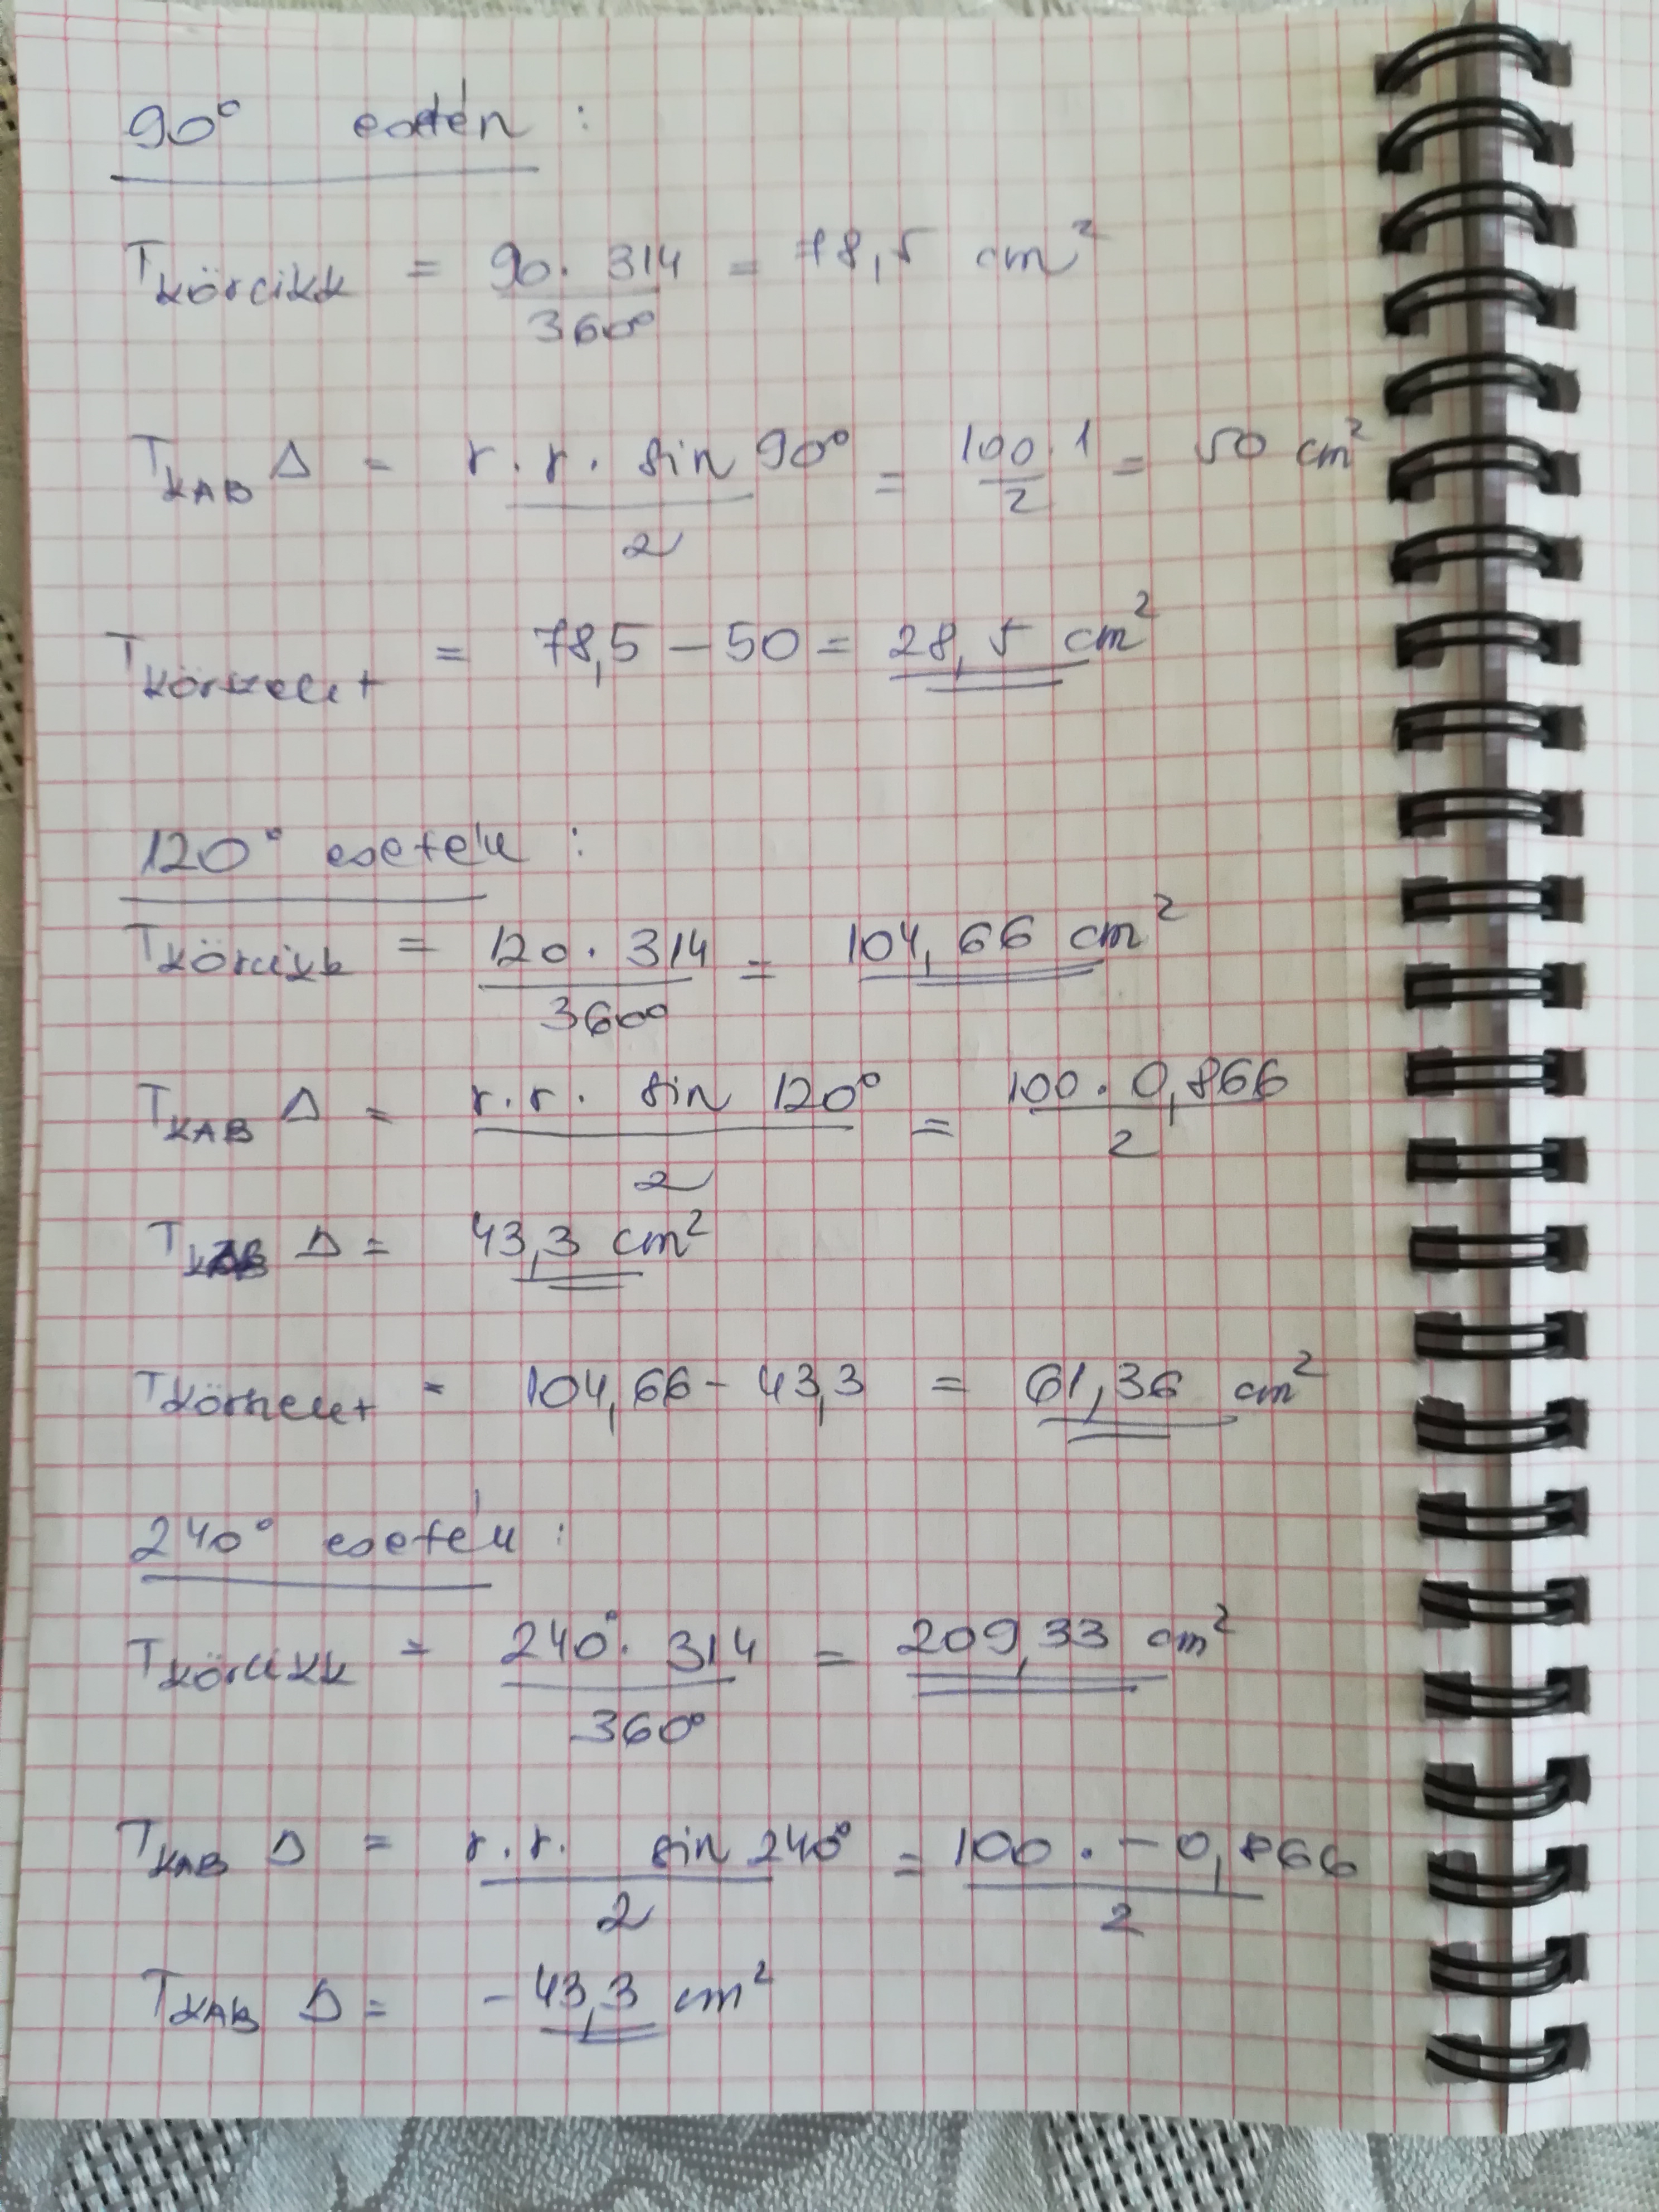 90° esetén :
Tkörcikk = 90. 314 / 360° = 78,5 cm²
TKAB Δ = r.r. sin 90° / 2 = 100.1 / 2 = 50 cm²
Tkörszelet = 78,5 - 50 = 28,5 cm²
120° esetén :
Tkörcikk = 120. 314 / 360° = 104,66 cm²
TKAB Δ = r.r. sin 120° / 2 = 100. 0,866 / 2
TKAB Δ = 43,3 cm²
Tkörszelet = 104,66 - 43,3 = 61,36 cm²
240° esetén :
Tkörcikk = 240°. 314 / 360° = 209,33 cm²
TKAB Δ = r.r. sin 240° / 2 = 100. -0,866 / 2
TKAB Δ = -43,3 cm²